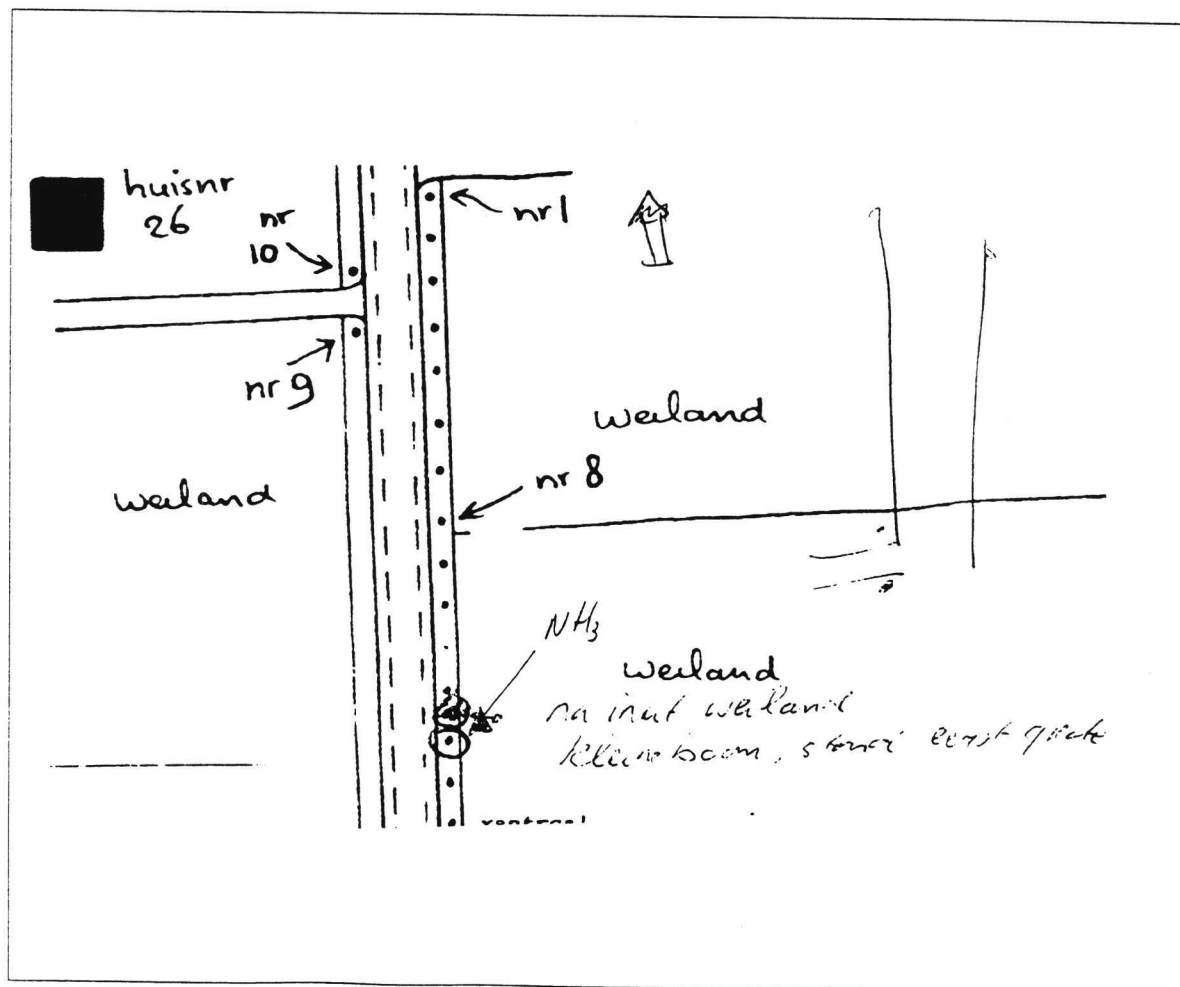 huisnr
26
nr
10
nr 1
nr 9
weiland
weiland
nr 8
NH3
weiland
na inrit weiland
kleine boom, stond eerst grote